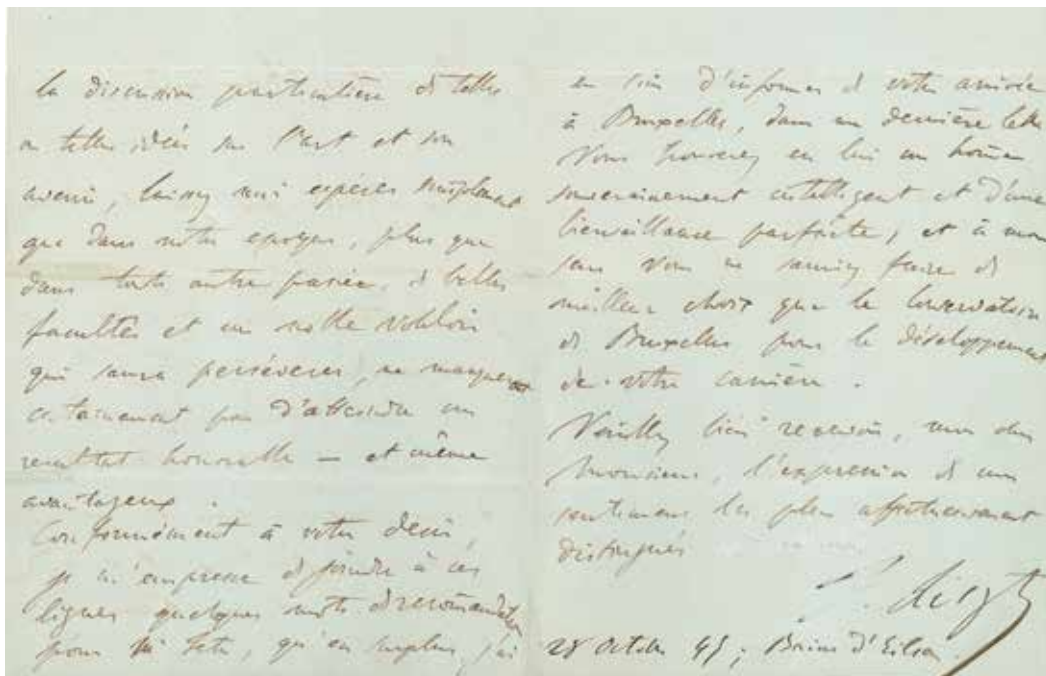 la discussion particulière de telles
ou telles idées sur l'art et son
avenir, laissez moi espérer simplement
que dans notre époque, plus que
dans toute autre passée, de belles
facultés et un noble vouloir
qui saura persévérer, ne manqueront
certainement pas d'atteindre un
resultat honorable — et même
avantageux.
Conformément à votre desir,
je m'empresse de joindre à ces
lignes quelques mots de recomandation
pour Mr Fetis, qu'en surplus j'ai
eu soin d'informer de votre arrivée
à Bruxelles, dans ma dernière lettre
Vous trouverez en lui un homme
souverainement intelligent et d'une
bienveillance parfaite; et à mon
sens vous ne sauriez faire de
meilleur choix que le Conservatoire
de Bruxelles pour le développement
de votre carrière.
Veuillez bien recevoir, mon cher
Monsieur, l'expression de mes
sentimens les plus affectueusement
distingués
F. Liszt
28 Octobre 45;